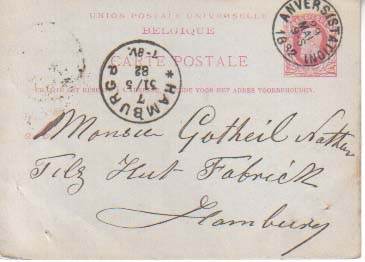 UNION POSTALE UNIVERSELLE
BELGIQUE
CARTE POSTALE
ANVERS (STATION)
MAI
1882
HAMBURG
7
31/5
82
7-8V.
VOOR HET ADRES VOORBEHOUDEN.
Monsieur Gotheil Nathan
Filz Hut Fabrick
Hamburg